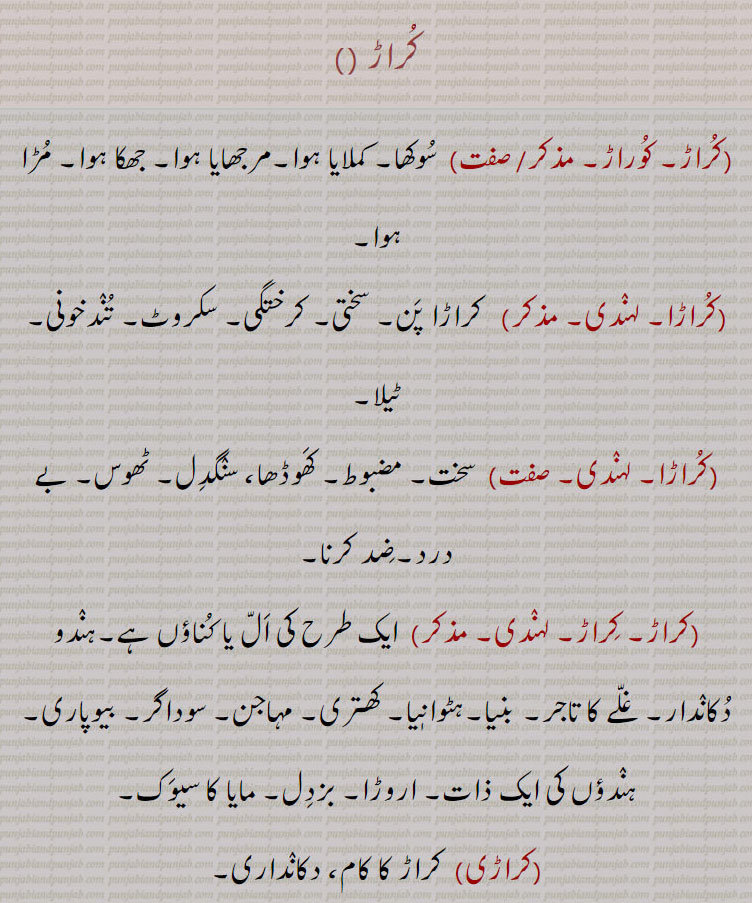 کُراڑ ()
(کُراڑ۔ کوُراڑ۔ مذکر/ صفت) سُوکھا۔ کملایا ہوا۔مرجھایا ہوا۔ جھکا ہوا۔ مُڑا
ہوا۔
(کُراڑا۔ لہنْدی۔ مذکر) کراڑا پَن۔ سختی۔ کرختگی۔ سکروٹ۔ تُنْدخونی۔
ٹیلا۔
(کُراڑا۔ لہنْدی۔ صفت) سخت۔ مضبوط۔ کھَوڈھا، سنْگدِل۔ ٹھوس۔ بے
درد۔ضِد کرنا۔
(کراڑ۔ کِراڑ۔ لہنْدی۔ مذکر) ایک طرح کی اَلّ یا کُناؤں ہے۔ہنْدو
دُکانْدار۔ غلّے کا تاجر۔ بنیا۔ہٹوانیا۔ کھتری۔ مہاجن۔ سوداگر۔ بیوپاری۔
ہنْدوؤں کی ایک ذات۔ اروڑا۔ بزدِل۔ مایا کا سیوَک۔
(کراڑی) کراڑ کا کام، دکانْداری۔